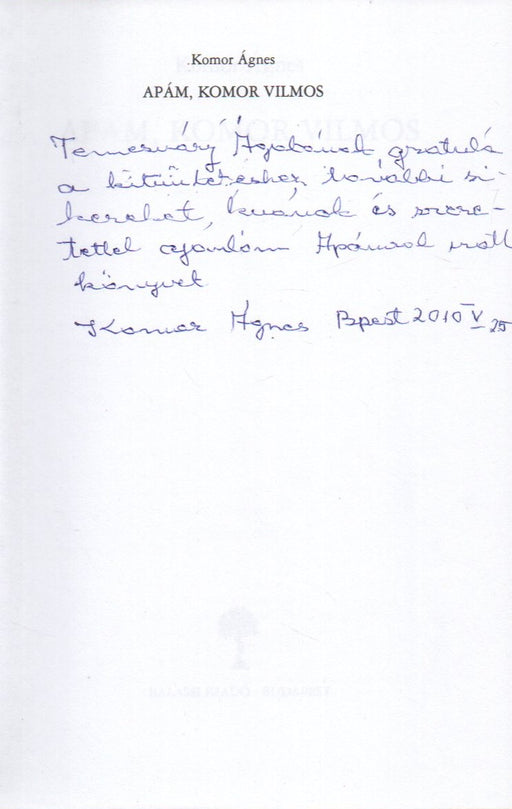 Komor Ágnes
APÁM, KOMOR VILMOS
APÁM, KOMOR VILMOS
Temesváry Ágotának, gratulá
a kitüntetéshez további si-
kereket, kívánok és szere-
tettel ajánlom Apámról írott
könyvet
Komor Ágnes Bpest 2010 V 25
BALASSI KIADÓ · BUDAPEST